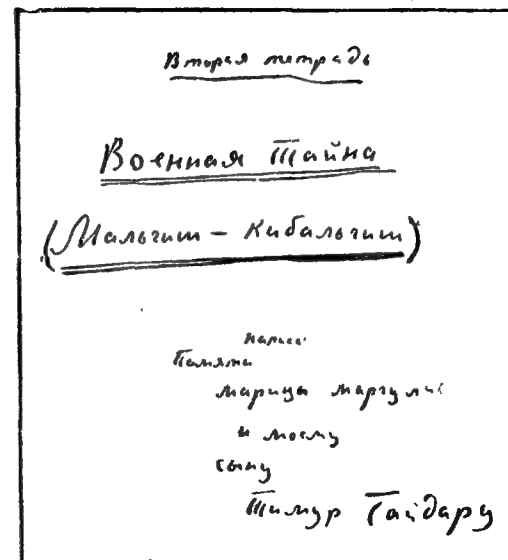 Вторая тетрадь
Военная Тайна
(Мальчиш – Кибальчиш)
Памяти
Марицы Маргулис
и моему
сыну
Тимур Гайдару